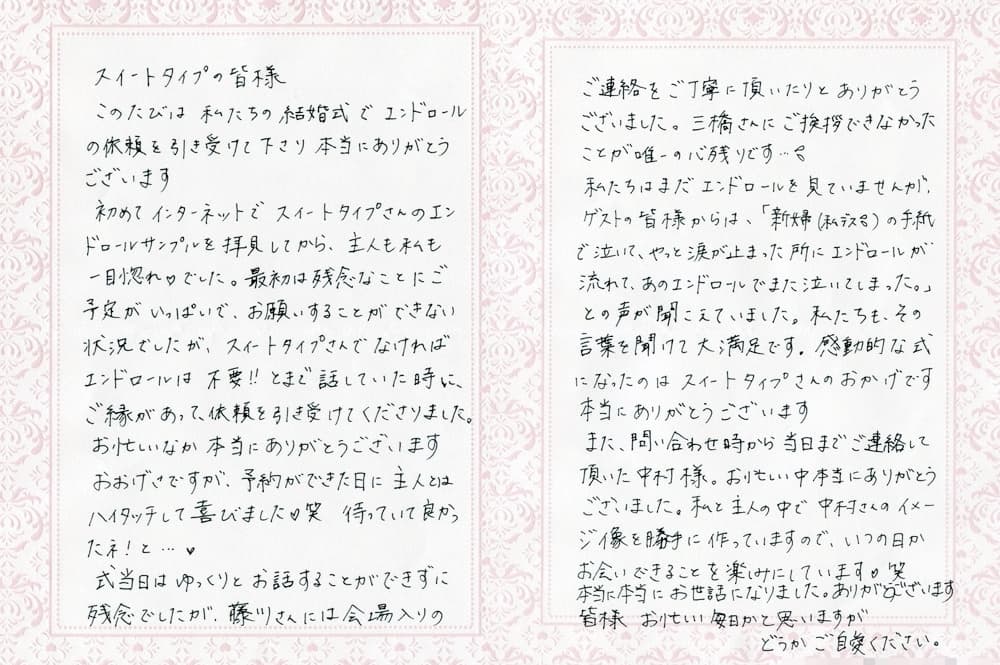 スイートタイプの皆様
このたびは 私たちの 結婚式で エンドロール
の依頼を引き受けて下さり 本当にありがとう
ございます
初めて インターネットで スイートタイプさんのエン
ドロールサンプルを 拝見してから、主人も私も
一目惚れ♡でした。最初は残念なことにご
予定がいっぱいで、お願いすることができない
状況でしたが、スイートタイプさんでなければ
エンドロールは 不要!! とまで 話していた時に、
ご縁があって、依頼を引き受けてくださりました。
お忙しいなか 本当にありがとうございます
おおげさですが、予約ができた日に 主人とは
ハイタッチして 喜びました♡笑 待っていて良かっ
たネ!と…♥
式当日は ゆっくりと お話することができずに
残念でしたが、藤川さんには会場入りの
ご連絡をご丁寧に頂いたりと ありがとう
ございました。三橋さんに ご挨拶できなかった
ことが唯一の心残りです…
私たちはまだ エンドロールを 見ていませんが、
ゲストの皆様からは、「新婦(私デス)の手紙
で泣いて、やっと涙が止まった所にエンドロールが
流れて、あのエンドロールでまた泣いてしまった。」
との声が聞こえていました。私たちも、その
言葉を聞けて大満足です。感動的な式
になったのは スイートタイプさんのおかげです
本当にありがとうございます
また、問い合わせ時から 当日まで ご連絡して
頂いた中村様。お忙しい中本当にありがとう
ございました。私と主人の中で 中村さんのイメー
ジ像を勝手に作っていますので、いつの日か
お会いできることを楽しみにしています♡笑
本当に本当に お世話になりました。ありがとうございます
皆様 お忙しい毎日かと思いますが
どうか ご自愛ください。